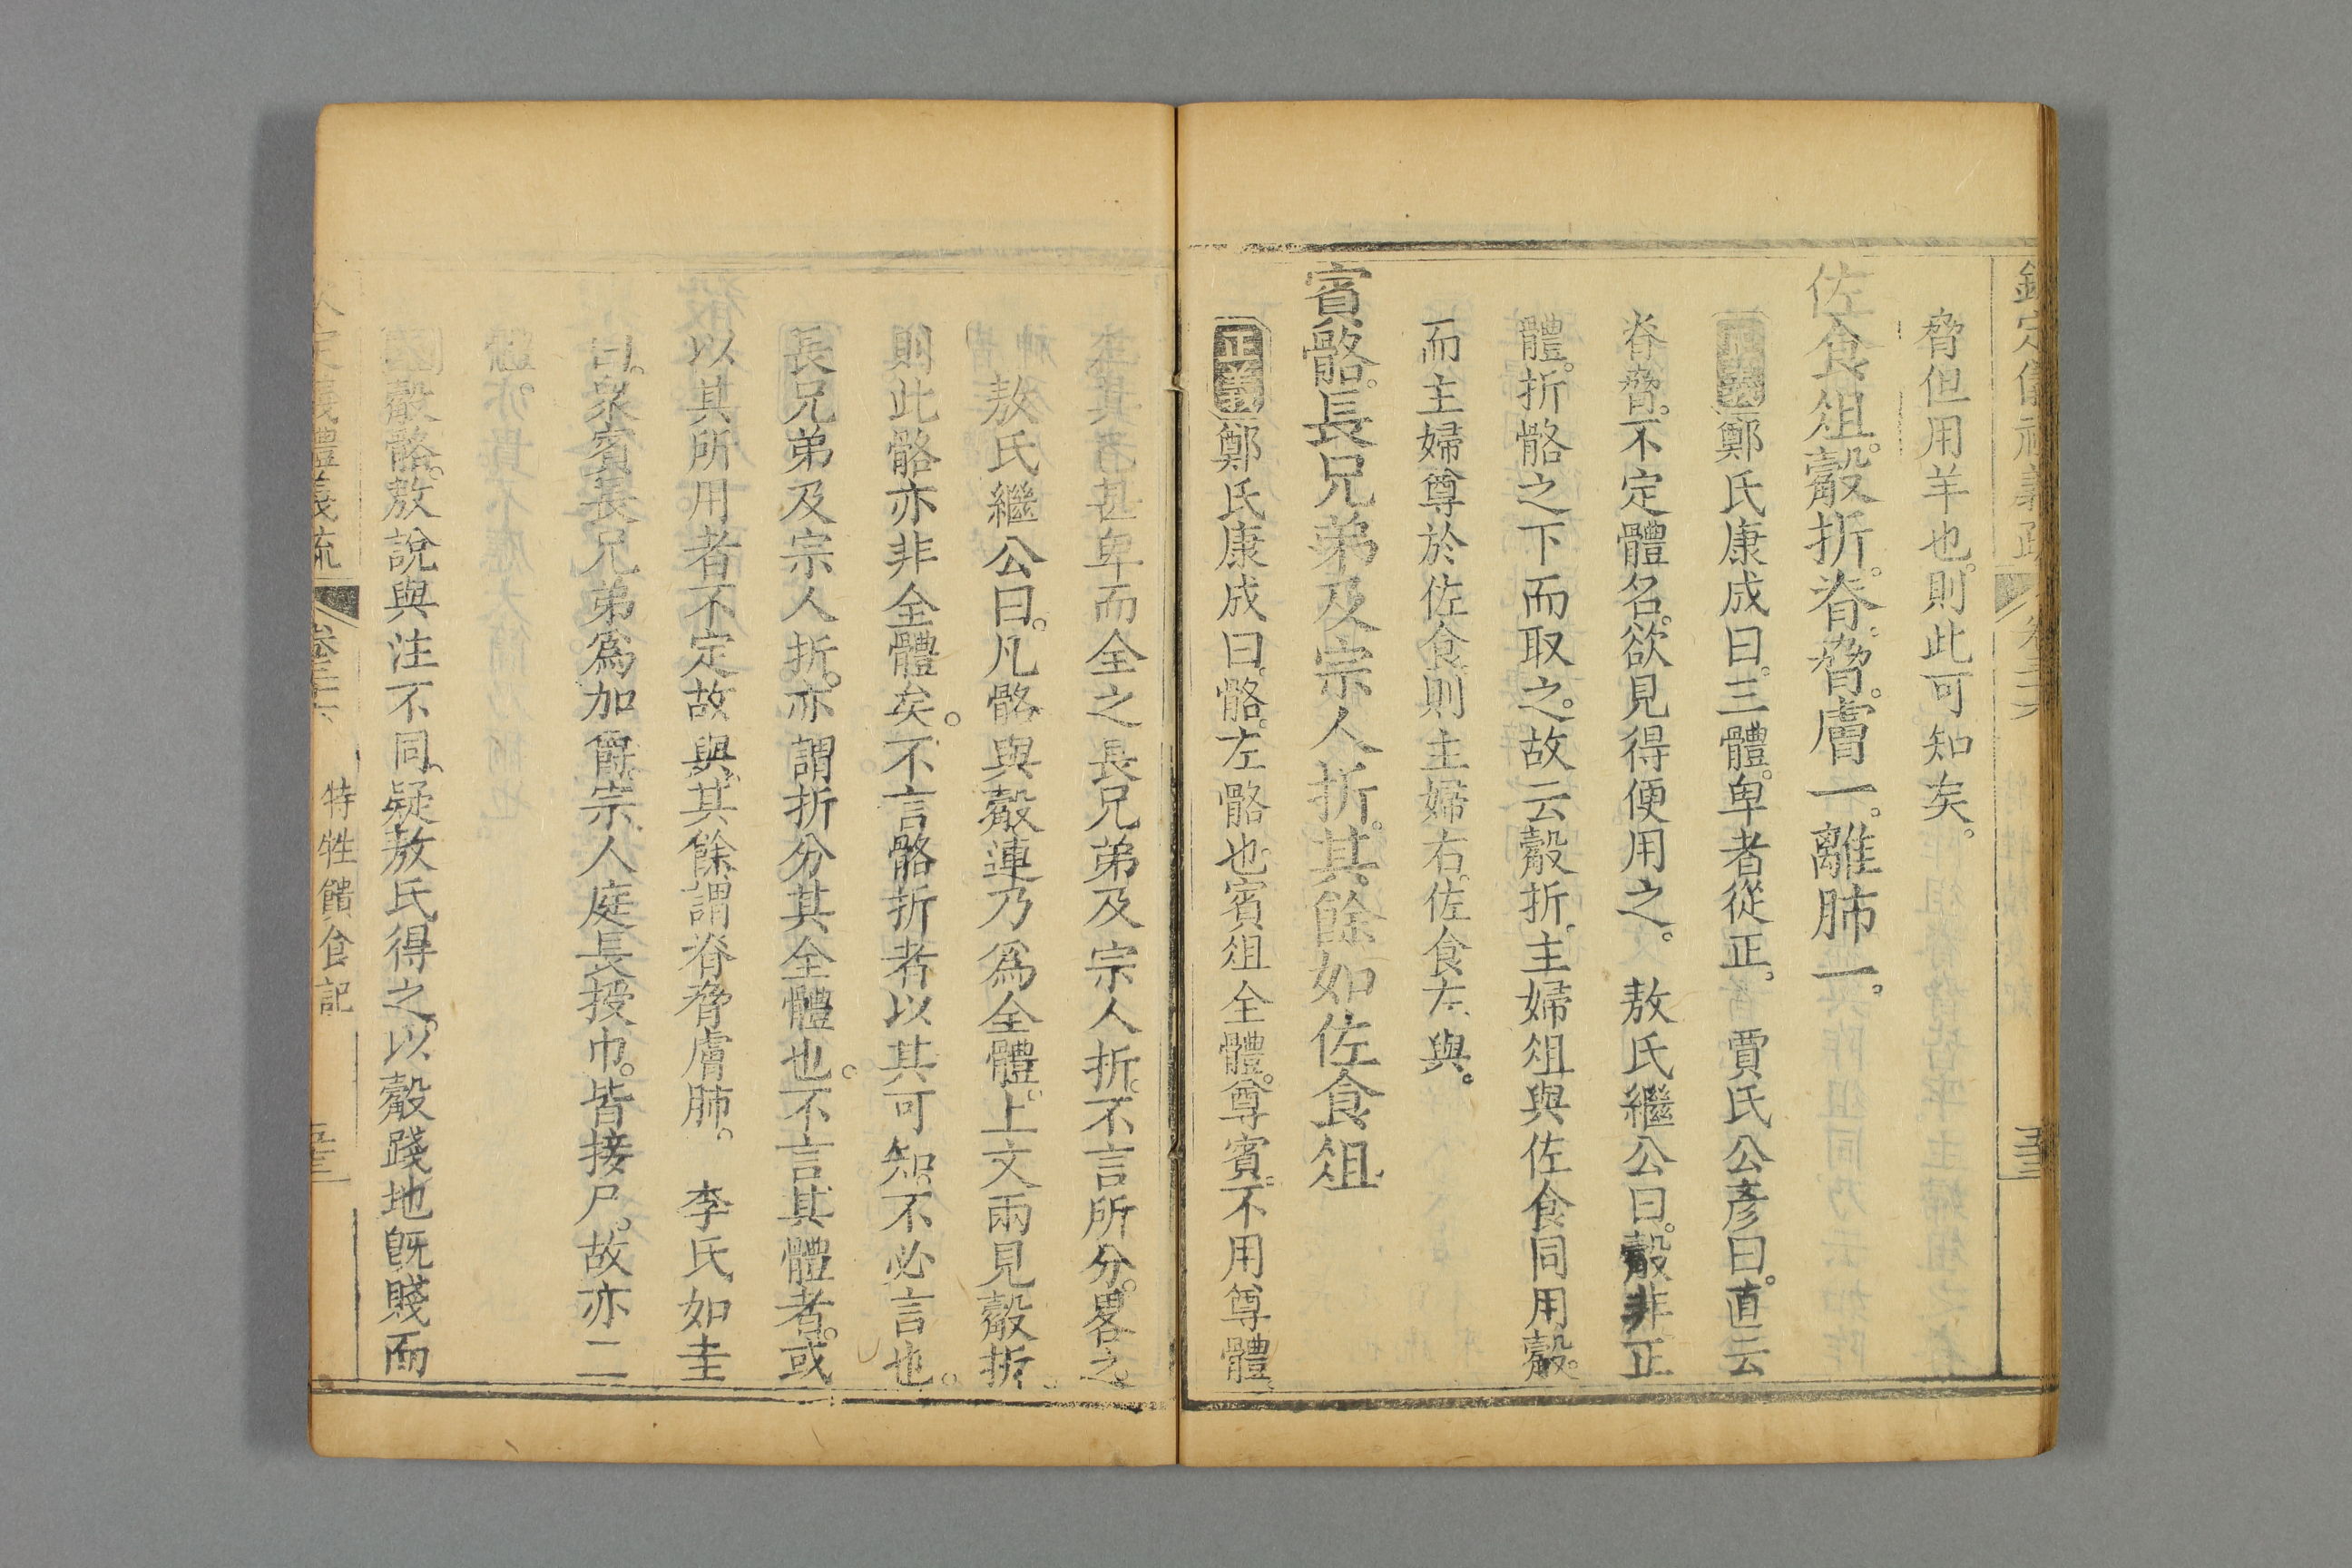 欽定儀禮義疏 卷三十六 五三
脅但用羊也則此可知矣。
佐食俎。觳折。脊。脅。膚一。離肺一。
正義鄭氏康成曰。三體。卑者從正。 賈氏公彥曰。直云
脊脅。不定體名。欲見得便用之。 敖氏繼公曰。觳非正
體。折骼之下而取之。故云觳折。主婦俎與佐食同用觳。
而主婦尊於佐食則主婦右。佐食左與。
賓骼。長兄弟及宗人折。其餘如佐食俎
正義鄭氏康成曰。骼。左骼也。賓俎全體。尊賓。不用尊體。
其卑而全之長兄弟及宗人折。不言所分。畧之。
敖氏繼公曰。凡骼與觳連乃爲全體。上文兩見觳折。
則此骼亦非全體矣。不言骼折者以其可知不必言也。
長兄弟及宗人折。亦謂折分其全體也。不言其體者。或
以其所用者不定故與。其餘謂脊脅膚肺。 李氏如圭
曰。衆賓長兄弟爲加爵。宗人庭長授巾。皆接尸。故亦二
體。
觳骼。敖說與注不同。疑敖氏得之。以觳踐地旣賤而
欽定儀禮義疏 卷三十六 特牲饋食記 五三